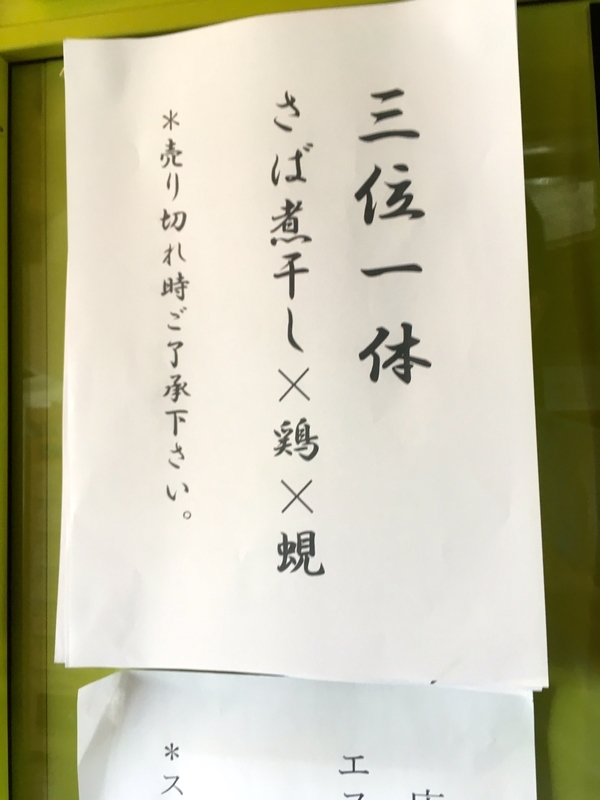 三位一体
さば煮干し×鶏×蜆
*売り切れ時ご了承下さい。
エス
*ス